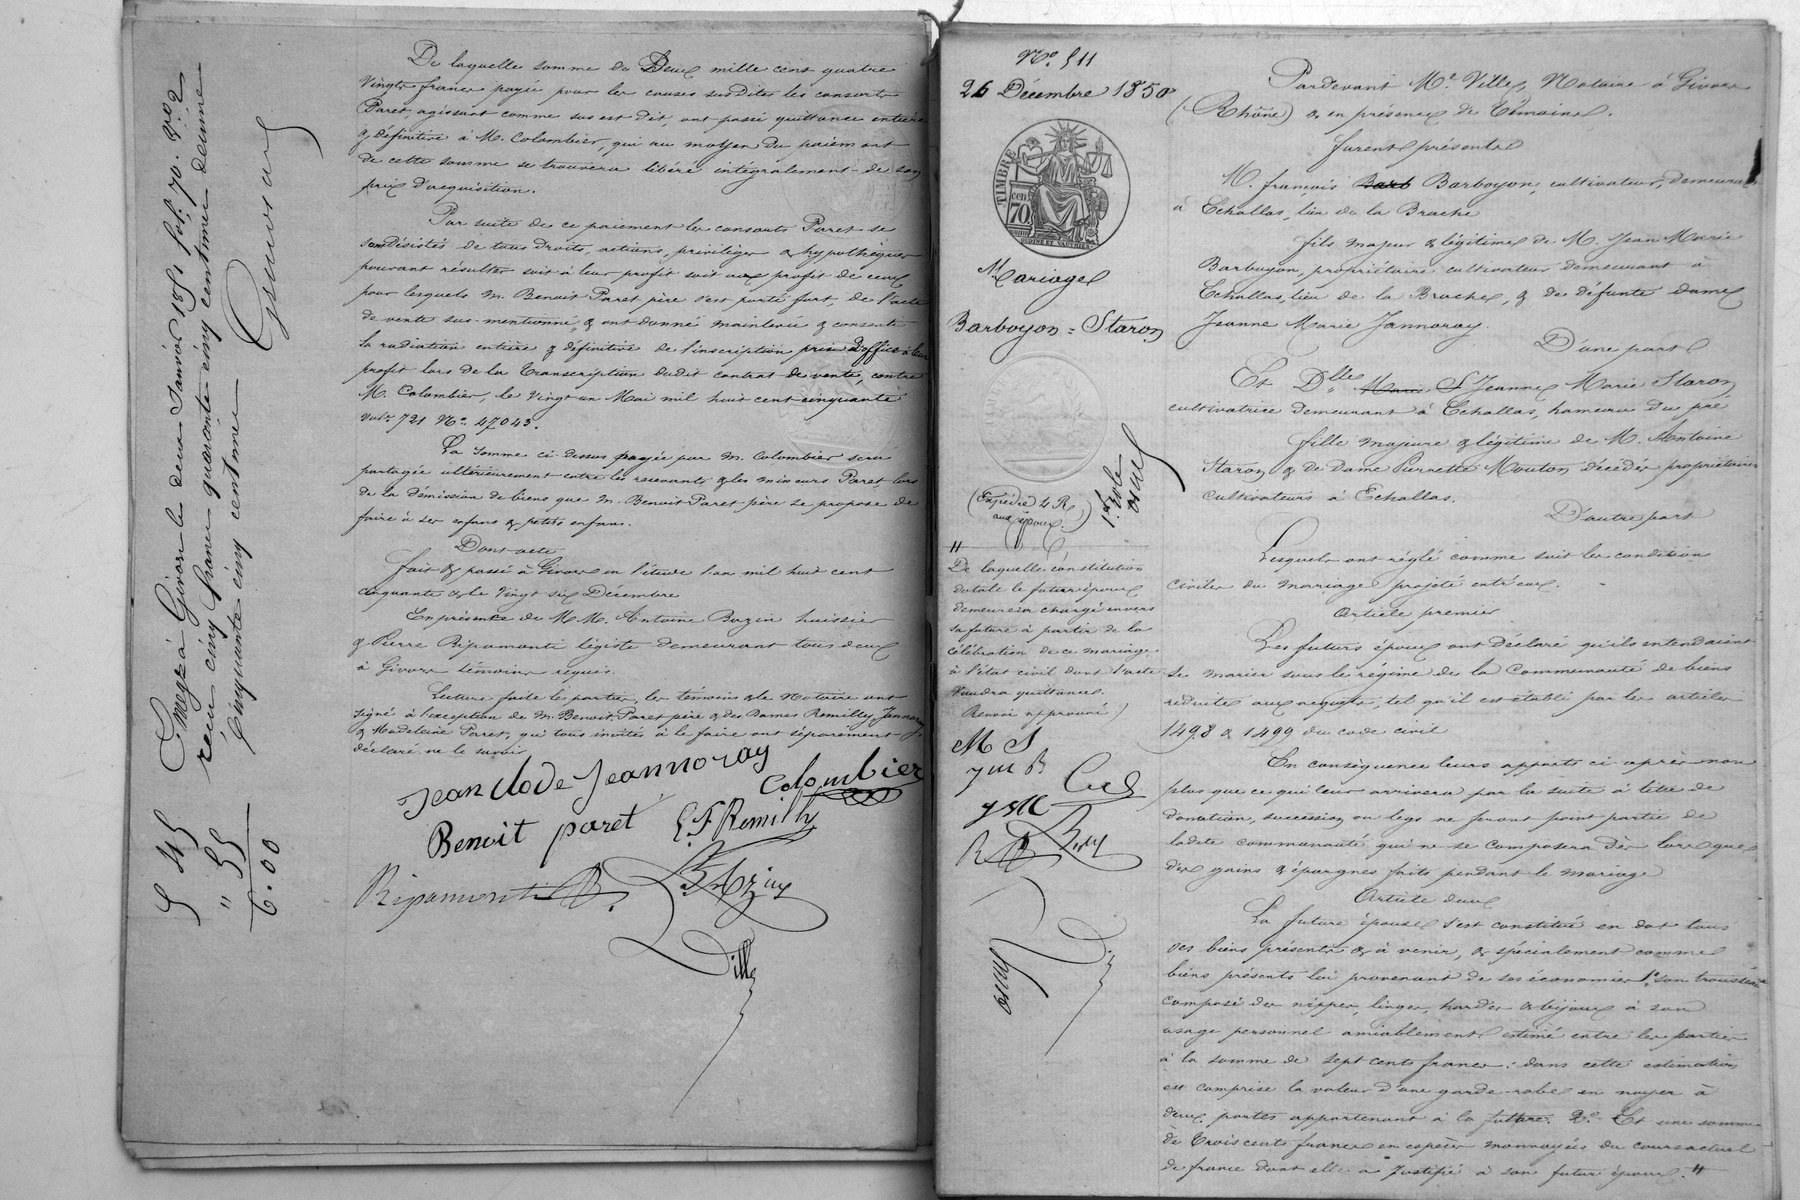 De laquelle somme de Deux mille cent quatre
Vingts francs payée pour les causes susdites les consorts
Paret agissant comme sus est dit, ont passé quittance entière
& définitive à M. Colombier, qui au moyen du paiement
de cette somme se trouvera libéré intégralement de son
prix d'acquisition.
Par suite de ce paiement les consorts Paret se
sont désistés de tous droits, actions, privilèges & hypothèques
pouvant résulter soit à leur profit soit aux profit de ceux
pour lesquels M. Benoit Paret père s'est porté fort, de l'acte
de vente sus-mentionné, & ont donné mainlevée & consenti
la radiation entière & définitive de l'inscription prise d'office à leur
profit lors de la transcription dudit contrat de vente, contre
M. Colombier, le vingt un Mai mil huit cent cinquante
vol. 721 No. 47043.
La somme ci dessus payée par M. Colombier sera
partagée ultérieurement entre les recevants & les mineurs Paret lors
de la démission de biens que M. Benoit Paret père se propose de
faire à ses enfans & petits enfans.
Dont acte
fait & passé à Givors en l'étude l'an mil huit cent
cinquante & le vingt six Décembre
En présence de M.M. Antoine Bazin huissier
& Pierre Ripamonti légiste demeurant tous deux
à Givors témoins requis.
Lecture faite les parties, les témoins & le Notaire ont
signé à l'exception de M. Benoit Paret père & des Dames Remilly, Jannoray
& Madeleine Paret, qui tous invités à le faire ont séparément
déclaré ne le savoir
Jean Clode Jeannoray
Colombier
Benoit paret
E. F. Remilly
Ripamonti
Bazin
Ville
Enregé à Givors le deux Janvier 1851 fol. 70. Vo. 2
reçu cinq francs quarante cinq centimes decime
cinquante cinq centimes
5 45
" 55
6.00
No. 511
26 Décembre 1850
TIMBRE
70 cen
Mariage
Barboyon = Staron
(Expédié 4 R.
aux époux.)
1er Role
"
De laquelle constitution
dotale le futur époux
demeurera chargé envers
sa future à partir de la
célébration de ce mariage
à l'état civil dont l'acte
Vaudra quittance.
(Renvoi approuvé)
M S
J M B
J S M
Pardevant Me. Ville, Notaire à Givors
(Rhône) & en présence de Témoins.
furent présents
M. françois Barb Barboyon, cultivateur, demeurant
à Echallas, lieu de la Brache
fils majeur & légitime de M. Jean Marie
Barboyon, propriétaire cultivateur demeurant à
Echallas, lieu de la Brache, & de défunte dame
Jeanne Marie Jannoray
D'une part
Et Dlle Marie S Jeanne Marie Staron
cultivatrice demeurant à Echallas, hameau du pré
fille majeure & légitime de M. Antoine
Staron & de Dame Pierrette Mouton décédés propriétaires
cultivateurs à Echallas.
D'autre part
Lesquels ont réglé comme suit les condition
civiles du mariage projeté entr'eux.
Article premier
Les futurs époux ont déclaré qu'ils entendaient
se marier sous le régime de la Communauté de biens
réduite aux acquets, tel qu'il est établi par les articles
1498 & 1499 du code civil
En conséquence leurs apports ci après non
plus que ce qui leur arrivera par la suite à titre de
donation, succession ou legs ne feront point partie de
ladite communauté qui ne se composera dès lors que
des gains & épargnes faits pendant le mariage
Article deux
La future épouse s'est constitué en dot tous
ses biens présents & à venir, & spécialement comme
biens présents lui provenant de ses économies 1o. son trousseau
composé de nippes, linges, hardes & bijoux à son
usage personnel amiablement estimé entre les parties
à la somme de sept cents francs: dans cette estimation
est comprise la valeur d'une garde-robe en noyer à
deux portes appartenant à la future. 2o. Et une somme
de trois cents francs en espèces monnayées du cours actuel
de france dont elle a justifié à son futur époux. "